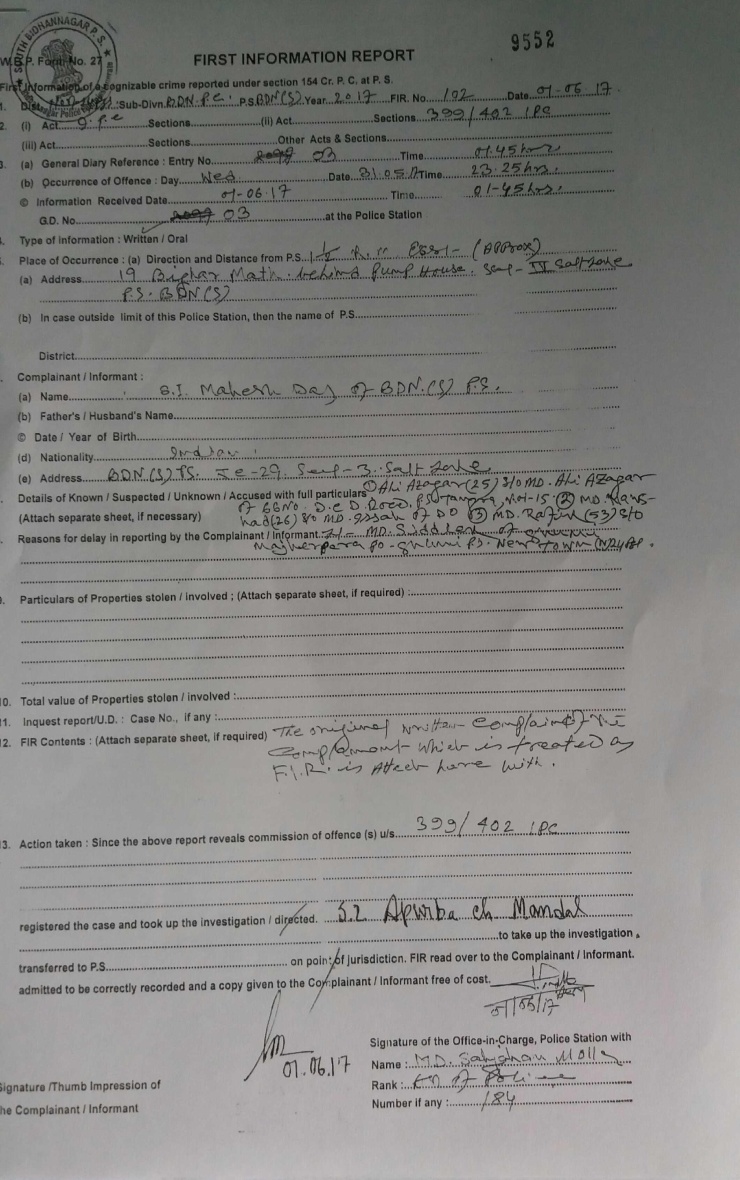 SOUTH BIDHANNAGAR P.S.
9552
W.B.P. Form No. 27
FIRST INFORMATION REPORT
First Information of a cognizable crime reported under section 154 Cr. P. C. at P. S.
1. Dist. Sub-Divn. BDN. P.C. P.S. BDN(S) Year 2017 FIR. No. 102 Date 01-06-17.
2. (i) Act Sections (ii) Act Sections 399/402 IPC
(iii) Act Sections Other Acts & Sections
3. (a) General Diary Reference : Entry No. 03 Time 01.45 hrs.
(b) Occurrence of Offence : Day Wed Date 31.05.17 Time 23.25 hrs.
© Information Received Date 01-06-17 Time 01-45 hrs.
G.D. No. 03 at the Police Station
Type of Information : Written / Oral
Place of Occurrence : (a) Direction and Distance from P.S. 1½ K.M East- (Approx)
(a) Address 19 Bighar Math. behind Pump House. Sec- IV Salt Lake
P.S. BDN(S)
(b) In case outside limit of this Police Station, then the name of P.S.
District
Complainant / Informant :
(a) Name S.I. Mahesh Das of BDN.(S) P.S.
(b) Father's / Husband's Name
© Date / Year of Birth
(d) Nationality Indian
(e) Address BDN(S) PS. Sec-3. Salt Lake
Details of Known / Suspected / Unknown / Accused with full particulars ① Ali Azagar (25) S/O MD. Ali Azagar
(Attach separate sheet, if necessary) of 66 No. D.C.D. Road, PS. Tangra, Kol-15 ② MD.
(26) S/O MD. of DO ③ MD. (53) S/O
Reasons for delay in reporting by the Complainant / Informant MD. of
Majherpara PO- PS- New Town
9. Particulars of Properties stolen / involved ; (Attach separate sheet, if required) :
10. Total value of Properties stolen / involved :
11. Inquest report/U.D. : Case No., if any :
12. FIR Contents : (Attach separate sheet, if required) The original written complaint of the
complainant which is treated as
F.I.R. is Attech here with.
13. Action taken : Since the above report reveals commission of offence (s) u/s 399/402 IPC
registered the case and took up the investigation / directed. S.I. Apurba ch Mandal
to take up the investigation
transferred to P.S. on point of jurisdiction. FIR read over to the Complainant / Informant.
admitted to be correctly recorded and a copy given to the Complainant / Informant free of cost.
01/06/17
01.06.17
Signature of the Office-in-Charge, Police Station with
Name : M.D. Molla
Signature /Thumb Impression of
Rank : of Police
the Complainant / Informant
Number if any : 184